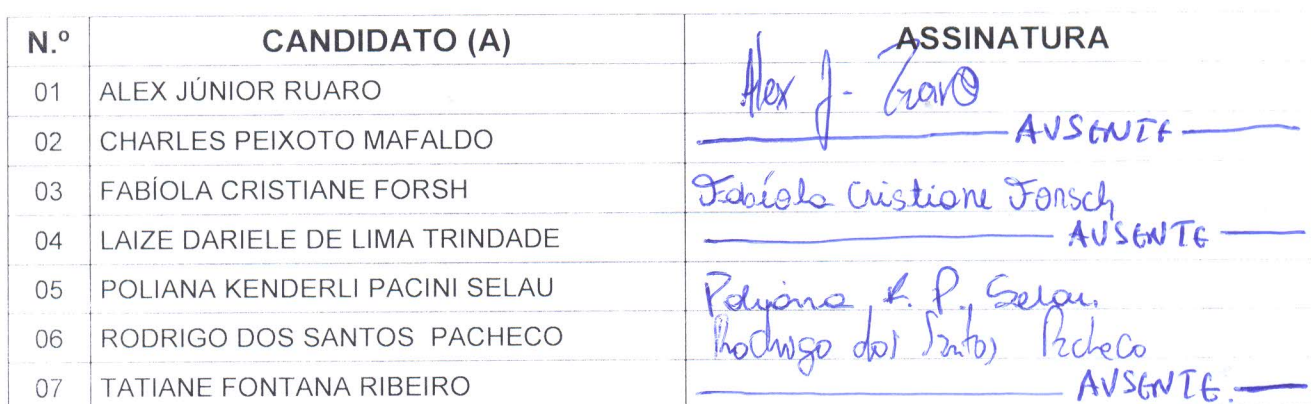 N.º CANDIDATO (A) ASSINATURA
01 ALEX JÚNIOR RUARO Alex J.
02 CHARLES PEIXOTO MAFALDO AUSENTE
03 FABÍOLA CRISTIANE FORSH Fabíola Cristiane Forsch
04 LAIZE DARIELE DE LIMA TRINDADE AUSENTE
05 POLIANA KENDERLI PACINI SELAU K. P. Selau
06 RODRIGO DOS SANTOS PACHECO Rodrigo dos Santos Pacheco
07 TATIANE FONTANA RIBEIRO AUSENTE.